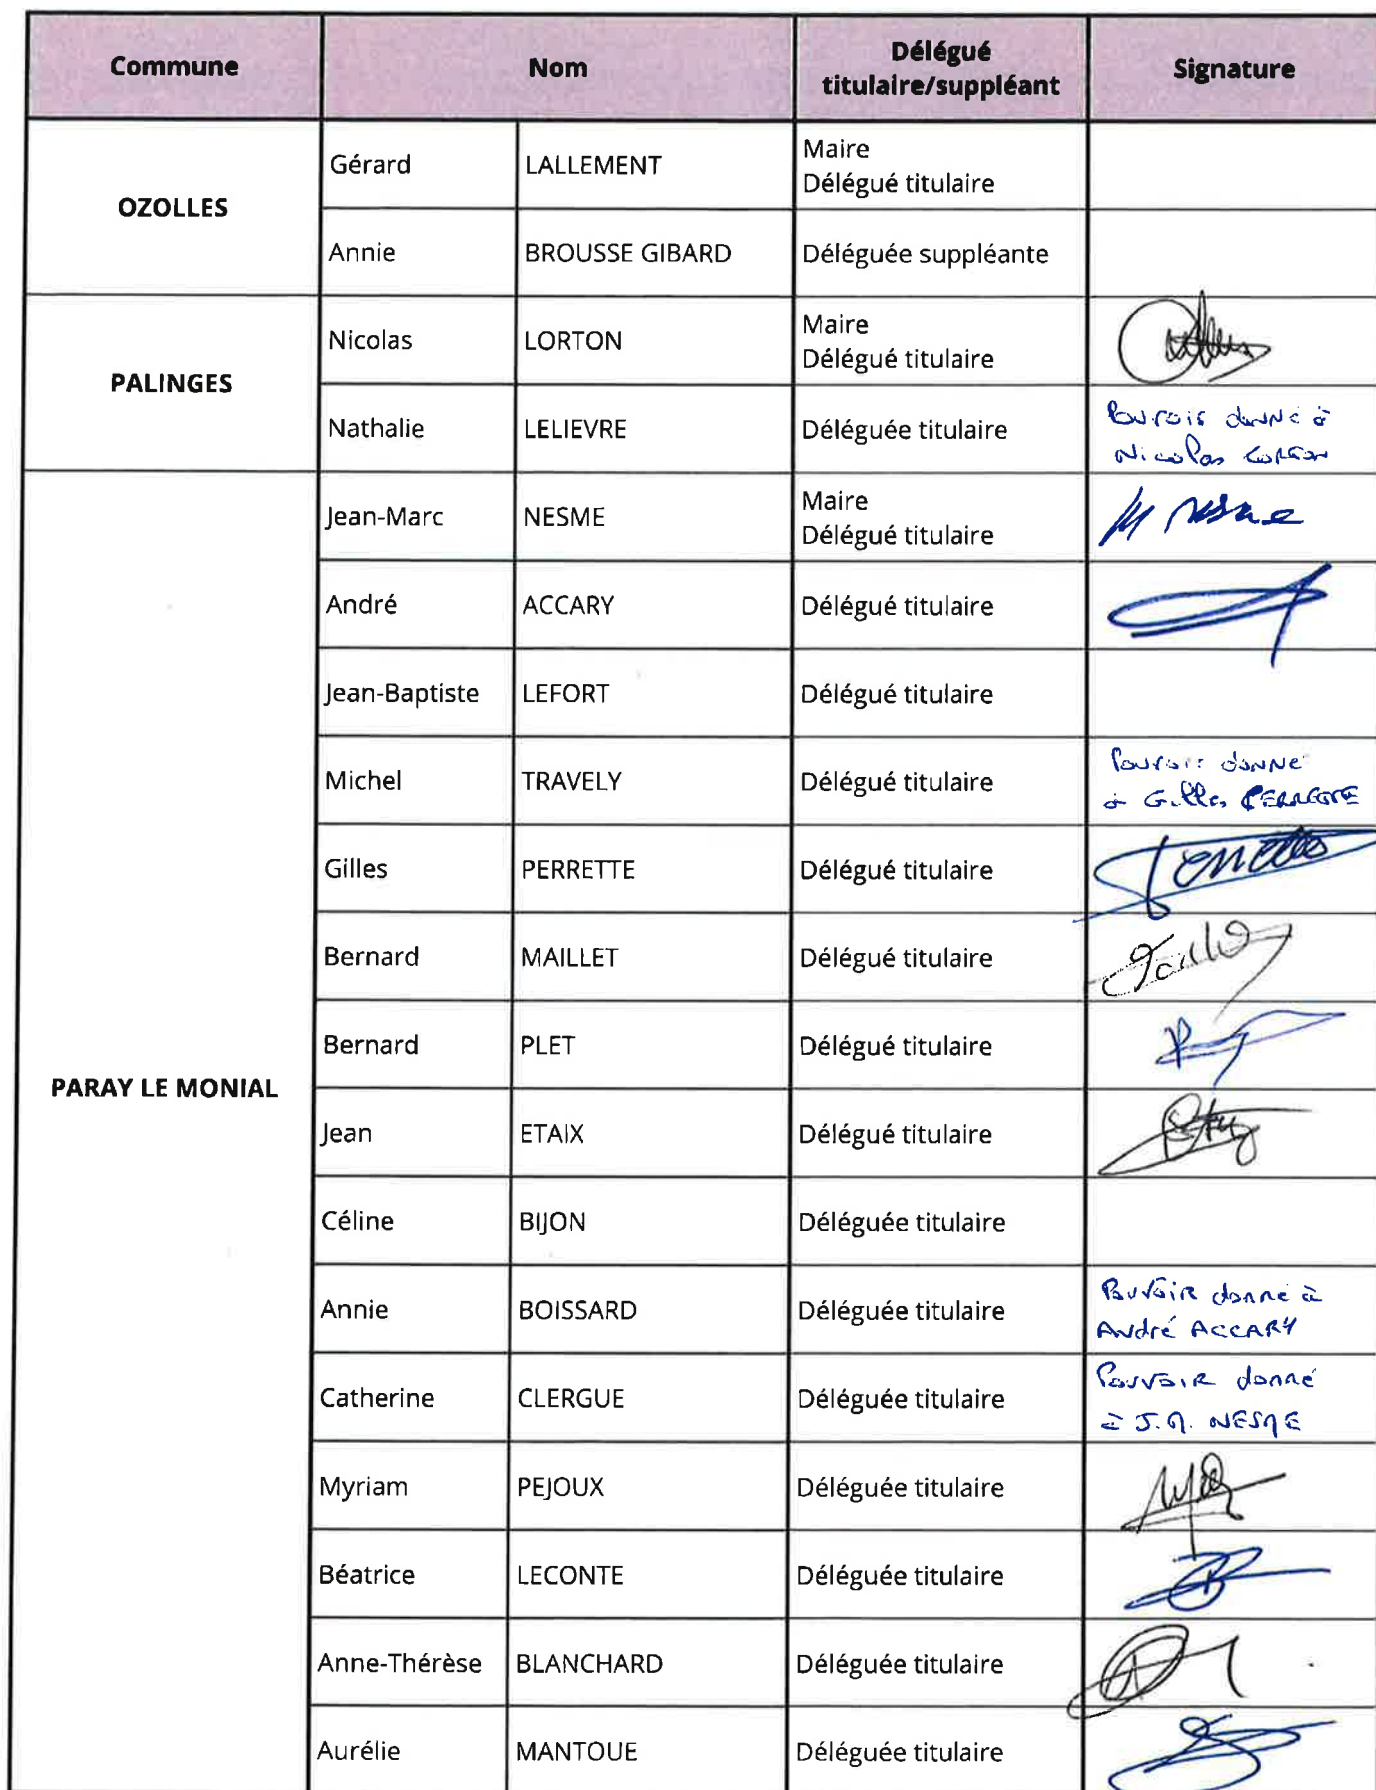 Commune Nom Délégué titulaire/suppléant Signature
OZOLLES
Gérard LALLEMENT Maire
Délégué titulaire
Annie BROUSSE GIBARD Déléguée suppléante
PALINGES
Nicolas LORTON Maire
Délégué titulaire
Nathalie LELIEVRE Déléguée titulaire Pouvoir donné à
Nicolas LORTON
PARAY LE MONIAL
Jean-Marc NESME Maire
Délégué titulaire M Nesme
André ACCARY Délégué titulaire
Jean-Baptiste LEFORT Délégué titulaire
Michel TRAVELY Délégué titulaire Pouvoir donné
à Gilles PERRETTE
Gilles PERRETTE Délégué titulaire
Bernard MAILLET Délégué titulaire
Bernard PLET Délégué titulaire
Jean ETAIX Délégué titulaire
Céline BIJON Déléguée titulaire
Annie BOISSARD Déléguée titulaire Pouvoir donné à
André ACCARY
Catherine CLERGUE Déléguée titulaire Pouvoir donné
à J.M. NESME
Myriam PEJOUX Déléguée titulaire
Béatrice LECONTE Déléguée titulaire
Anne-Thérèse BLANCHARD Déléguée titulaire
Aurélie MANTOUE Déléguée titulaire